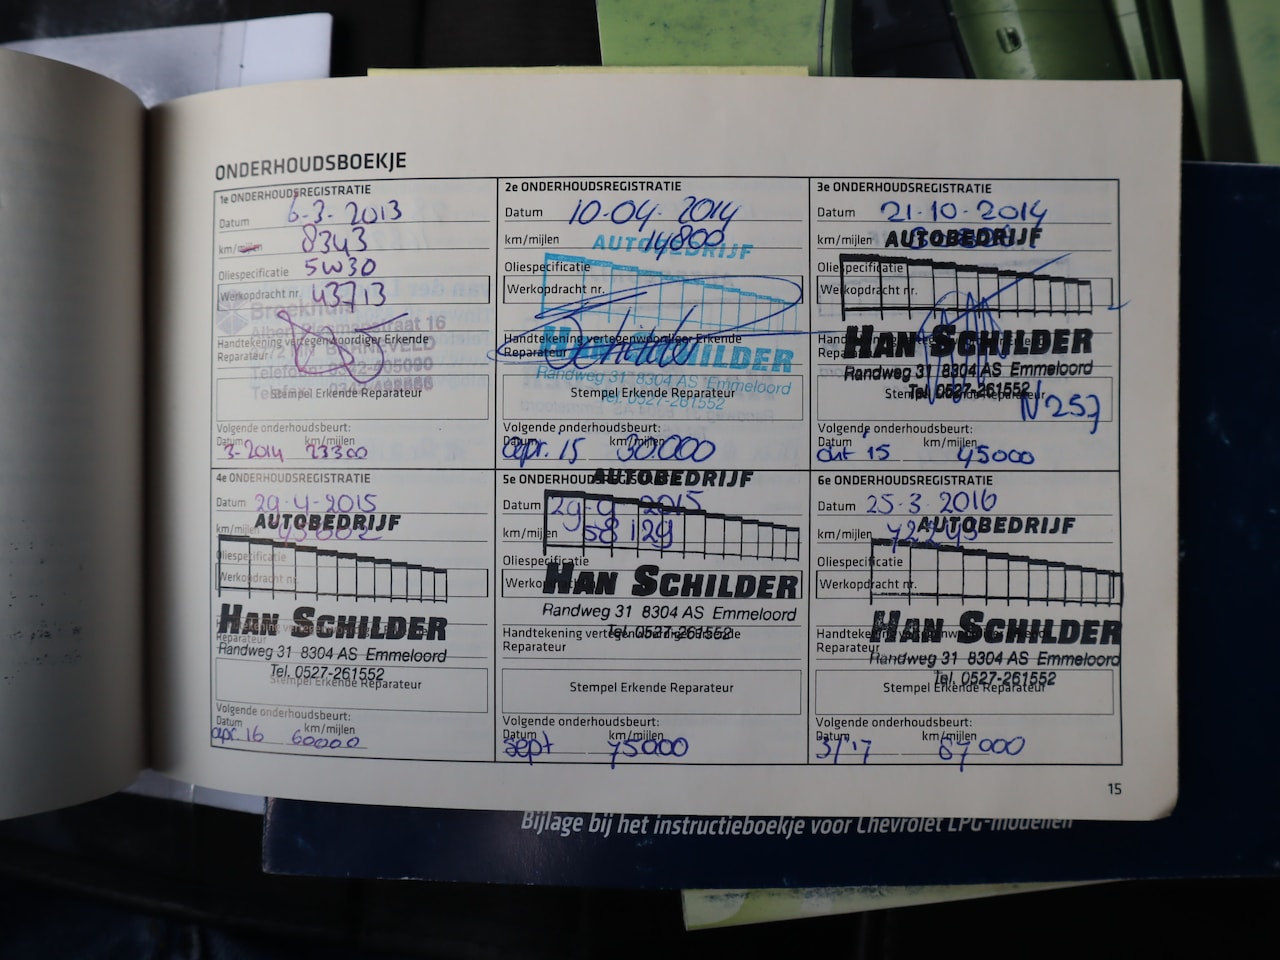 ONDERHOUDSBOEKJE
1e ONDERHOUDSREGISTRATIE
Datum 6-3-2013
km/mijlen 8343
Oliespecificatie 5W30
Werkopdracht nr. 43713
Broekhuis
Handtekening vertegenwoordiger Erkende
Reparateur
Stempel Erkende Reparateur
Volgende onderhoudsbeurt:
Datum km/mijlen
3-2014 23300
2e ONDERHOUDSREGISTRATIE
Datum 10-04-2014
km/mijlen 14800
AUTOBEDRIJF
Oliespecificatie
Werkopdracht nr.
Handtekening vertegenwoordiger Erkende
Reparateur
HAN SCHILDER
Randweg 31 8304 AS Emmeloord
Tel. 0527-261552
Stempel Erkende Reparateur
Volgende onderhoudsbeurt:
Datum km/mijlen
apr. 15 30.000
3e ONDERHOUDSREGISTRATIE
Datum 21-10-2014
km/mijlen
AUTOBEDRIJF
Oliespecificatie
Werkopdracht nr.
HAN SCHILDER
Randweg 31 8304 AS Emmeloord
Tel. 0527-261552
N257
Volgende onderhoudsbeurt:
Datum km/mijlen
okt 15 45000
4e ONDERHOUDSREGISTRATIE
Datum 29-4-2015
km/mijlen
AUTOBEDRIJF
Oliespecificatie
Werkopdracht nr.
HAN SCHILDER
Reparateur
Randweg 31 8304 AS Emmeloord
Tel. 0527-261552
Stempel Erkende Reparateur
Volgende onderhoudsbeurt:
Datum km/mijlen
apr. 16 60000
5e ONDERHOUDSREGISTRATIE
AUTOBEDRIJF
Datum 29-9-2015
km/mijlen 58129
Oliespecificatie
HAN SCHILDER
Randweg 31 8304 AS Emmeloord
Tel. 0527-261552
Handtekening vertegenwoordiger Erkende
Reparateur
Stempel Erkende Reparateur
Volgende onderhoudsbeurt:
Datum km/mijlen
sept 75000
6e ONDERHOUDSREGISTRATIE
Datum 25-3-2016
km/mijlen
AUTOBEDRIJF
Oliespecificatie
Werkopdracht nr.
HAN SCHILDER
Reparateur
Randweg 31 8304 AS Emmeloord
Tel. 0527-261552
Stempel Erkende Reparateur
Volgende onderhoudsbeurt:
Datum km/mijlen
3/'17 87000
15
Bijlage bij het instructieboekje voor Chevrolet LPG-modellen